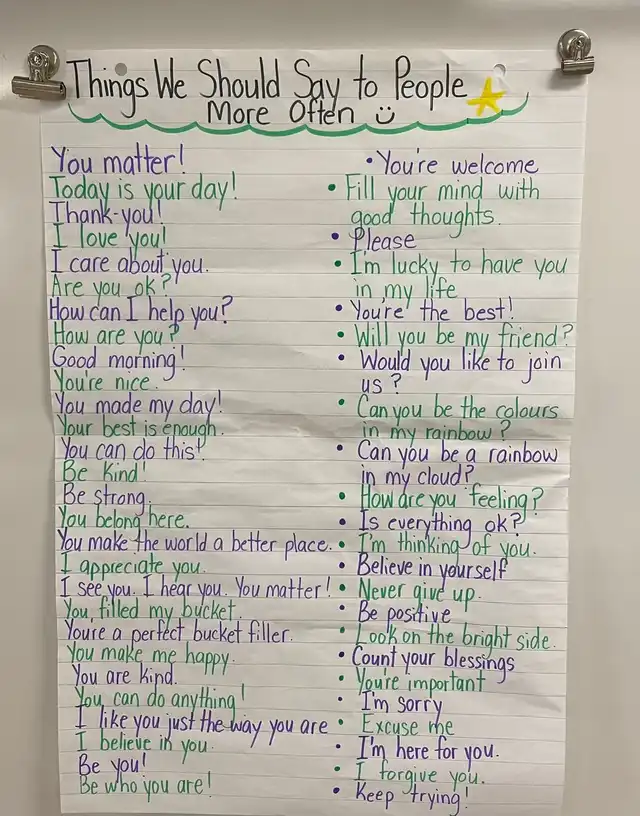 Things We Should Say to People
More Often
You matter!
Today is your day!
Thank-you!
I love you!
I care about you.
Are you ok?
How can I help you?
How are you?
Good morning!
You're nice.
You made my day!
Your best is enough.
You can do this!
Be Kind!
Be strong.
You belong here.
You make the world a better place.
I appreciate you.
I see you. I hear you. You matter!
You filled my bucket.
You're a perfect bucket filler.
You make me happy.
You are kind.
You can do anything!
I like you just the way you are
I believe in you.
Be you!
Be who you are!
• You're welcome
• Fill your mind with
good thoughts.
• Please
• I'm lucky to have you
in my life
• You're the best!
• Will you be my friend?
• Would you like to join
us?
• Can you be the colours
in my rainbow?
• Can you be a rainbow
in my cloud?
• How are you feeling?
• Is everything ok?
• I'm thinking of you.
• Believe in yourself
• Never give up.
• Be positive
• Look on the bright side.
• Count your blessings
• You're important
• I'm sorry
• Excuse me
• I'm here for you.
• I forgive you.
• Keep trying!